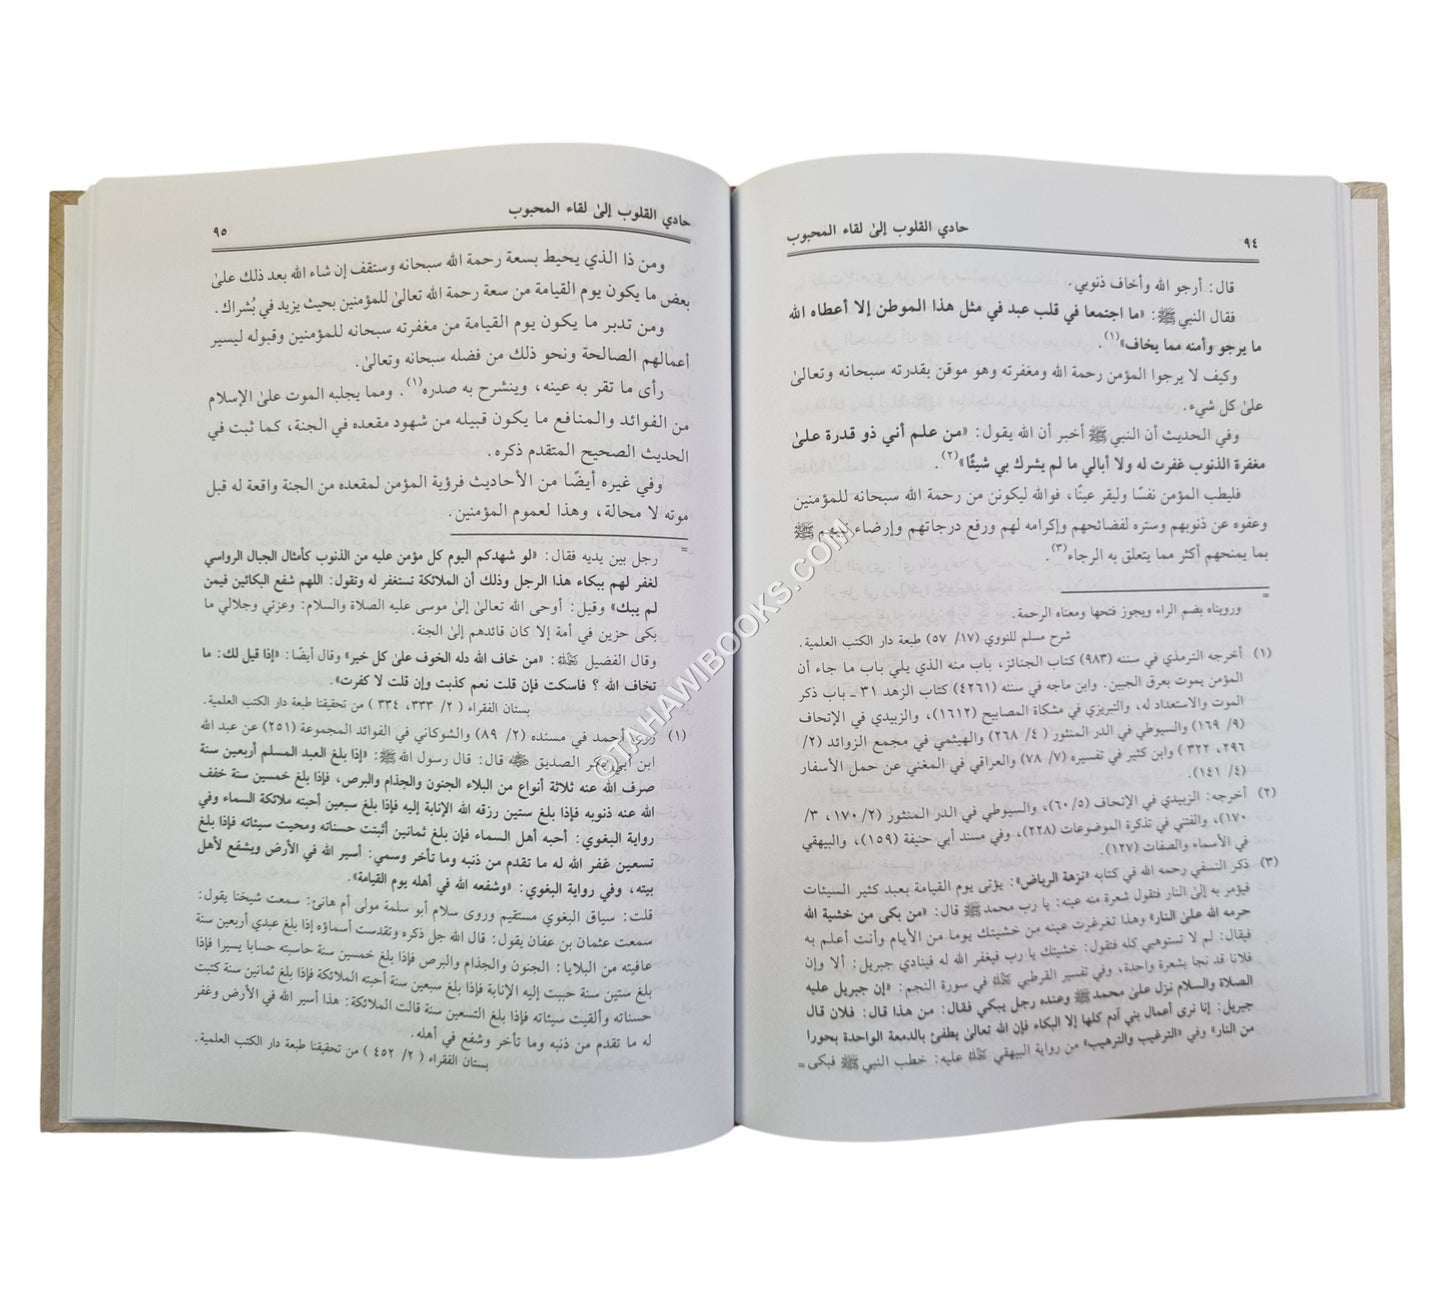 حادي القلوب إلىٰ لقاء المحبوب
٩٤
قال: أرجو الله وأخاف ذنوبي.
فقال النبي ﷺ: «ما اجتمعا في قلب عبد في مثل هذا الموطن إلا أعطاه الله
ما يرجو وأمنه مما يخاف»(١).
وكيف لا يرجوا المؤمن رحمة الله ومغفرته وهو موقن بقدرته سبحانه وتعالىٰ
علىٰ كل شيء.
وفي الحديث أن النبي ﷺ أخبر أن الله يقول: «من علم أني ذو قدرة علىٰ
مغفرة الذنوب غفرت له ولا أبالي ما لم يشرك بي شيئًا»(٢).
فليطب المؤمن نفسًا وليقر عينًا، فوالله ليكونن من رحمة الله سبحانه للمؤمنين
وعفوه عن ذنوبهم وستره لفضائحهم وإكرامه لهم ورفع درجاتهم وإرضاء نبيهم ﷺ
بما يمنحهم أكثر مما يتعلق به الرجاء(٣).
=
ورويناه بضم الراء ويجوز فتحها ومعناه الرحمة.
شرح مسلم للنووي (١٧/ ٥٧) طبعة دار الكتب العلمية.
(١) أخرجه الترمذي في سننه (٩٨٣) كتاب الجنائز، باب منه الذي يلي باب ما جاء أن
المؤمن يموت بعرق الجبين. وابن ماجه في سننه (٤٢٦١) كتاب الزهد ٣١ ـ باب ذكر
الموت والاستعداد له، والتبريزي في مشكاة المصابيح (١٦١٢)، والزبيدي في الإتحاف
(٩/ ١٦٩) والسيوطي في الدر المنثور (٤/ ٢٦٨) والهيثمي في مجمع الزوائد (٢/
٢٩٦، ٣٢٢) وابن كثير في تفسيره (٧/ ٧٨) والعراقي في المغني عن حمل الأسفار
(٤/ ١٤١).
(٢) أخرجه: الزبيدي في الإتحاف (٥/٦٠)، والسيوطي في الدر المنثور (٢/ ١٧٠، ٣/
١٧٠)، والفتني في تذكرة الموضوعات (٢٢٨)، وفي مسند أبي حنيفة (١٥٩)، والبيهقي
في الأسماء والصفات (١٢٧).
(٣) ذكر النسفي رحمه الله في كتابه «نزهة الرياض»: يؤتى يوم القيامة بعبد كثير السيئات
فيؤمر به إلىٰ النار فتقول شعرة منه عينه: يا رب محمد ﷺ قال: «من بكى من خشية الله
حرمه الله علىٰ النار» وهذا تغرغرت عينه من خشيتك يوما من الأيام وأنت أعلم به
فيقال: لم لا تستوهبي كله فتقول: خشيتك يا رب فيغفر الله له فينادي جبريل: ألا وإن
فلانا قد نجا بشعرة واحدة، وفي تفسير القرطبي في سورة النجم: «إن جبريل عليه
الصلاة والسلام نزل علىٰ محمد ﷺ وعنده رجل يبكي فقال: من هذا قال: فلان قال
جبريل: إنا نرى أعمال بني آدم كلها إلا البكاء فإن الله تعالىٰ يطفئ بالدمعة الواحدة بحورا
من النار» وفي «الترغيب والترهيب» من رواية البيهقي عليه: خطب النبي ﷺ فبكى =
حادي القلوب إلىٰ لقاء المحبوب
٩٥
ومن ذا الذي يحيط بسعة رحمة الله سبحانه وستقف إن شاء الله بعد ذلك علىٰ
بعض ما يكون يوم القيامة من سعة رحمة الله تعالىٰ للمؤمنين بحيث يزيد في بُشراك.
ومن تدبر ما يكون يوم القيامة من مغفرته سبحانه للمؤمنين وقبوله ليسير
أعمالهم الصالحة ونحو ذلك من فضله سبحانه وتعالىٰ.
رأى ما تقر به عينه، وينشرح به صدره(١). ومما يجلبه الموت علىٰ الإسلام
من الفوائد والمنافع ما يكون قبيله من شهود مقعده في الجنة، كما ثبت في
الحديث الصحيح المتقدم ذكره.
وفي غيره أيضًا من الأحاديث فرؤية المؤمن لمقعده من الجنة واقعة له قبل
موته لا محالة، وهذا لعموم المؤمنين.
=
رجل بين يديه فقال: «لو شهدكم اليوم كل مؤمن عليه من الذنوب كأمثال الجبال الرواسي
لغفر لهم ببكاء هذا الرجل وذلك أن الملائكة تستغفر له وتقول: اللهم شفع البكائين فيمن
لم يبك» وقيل: أوحى الله تعالىٰ إلىٰ موسى عليه الصلاة والسلام: وعزتي وجلالي ما
بكى حزين في أمة إلا كان قائدهم إلىٰ الجنة.
وقال الفضيل: «من خاف الله دله الخوف علىٰ كل خير» وقال أيضًا: «إذا قيل لك: ما
تخاف الله ؟ فاسكت فإن قلت نعم كذبت وإن قلت لا كفرت».
بستان الفقراء (٢/ ٣٣٣، ٣٣٤) من تحقيقنا طبعة دار الكتب العلمية.
(١) روى أحمد في مسنده (٢/ ٨٩) والشوكاني في الفوائد المجموعة (٢٥١) عن عبد الله
ابن أبي بكر الصديق قال: قال رسول الله ﷺ: «إذا بلغ العبد المسلم أربعين سنة
صرف الله عنه ثلاثة أنواع من البلاء الجنون والجذام والبرص، فإذا بلغ خمسين سنة خفف
الله عنه ذنوبه فإذا بلغ ستين رزقه الله الإنابة إليه فإذا بلغ سبعين أحبته ملائكة السماء وفي
رواية البغوي: أحبه أهل السماء فإن بلغ ثمانين أثبتت حسناته ومحيت سيئاته فإذا بلغ
تسعين غفر الله له ما تقدم من ذنبه وما تأخر وسمي: أسير الله في الأرض ويشفع لأهل
بيته، وفي رواية البغوي: «وشفعه الله في أهله يوم القيامة».
قلت: سياق البغوي مستقيم وروى سلام أبو سلمة مولى أم هانئ: سمعت شيخنا يقول:
سمعت عثمان بن عفان يقول: قال الله جل ذكره وتقدست أسماؤه إذا بلغ عبدي أربعين سنة
عافيته من البلايا: الجنون والجذام والبرص فإذا بلغ خمسين سنة حاسبته حسابا يسيرا فإذا
بلغ ستين سنة حببت إليه الإنابة فإذا بلغ سبعين سنة أحبته الملائكة فإذا بلغ ثمانين سنة كتبت
حسناته وألقيت سيئاته فإذا بلغ التسعين سنة قالت الملائكة: هذا أسير الله في الأرض وغفر
له ما تقدم من ذنبه وما تأخر وشفع في أهله.
بستان الفقراء (٢/ ٤٥٢) من تحقيقنا طبعة دار الكتب العلمية.
©TAHAWIBOOKS.COM